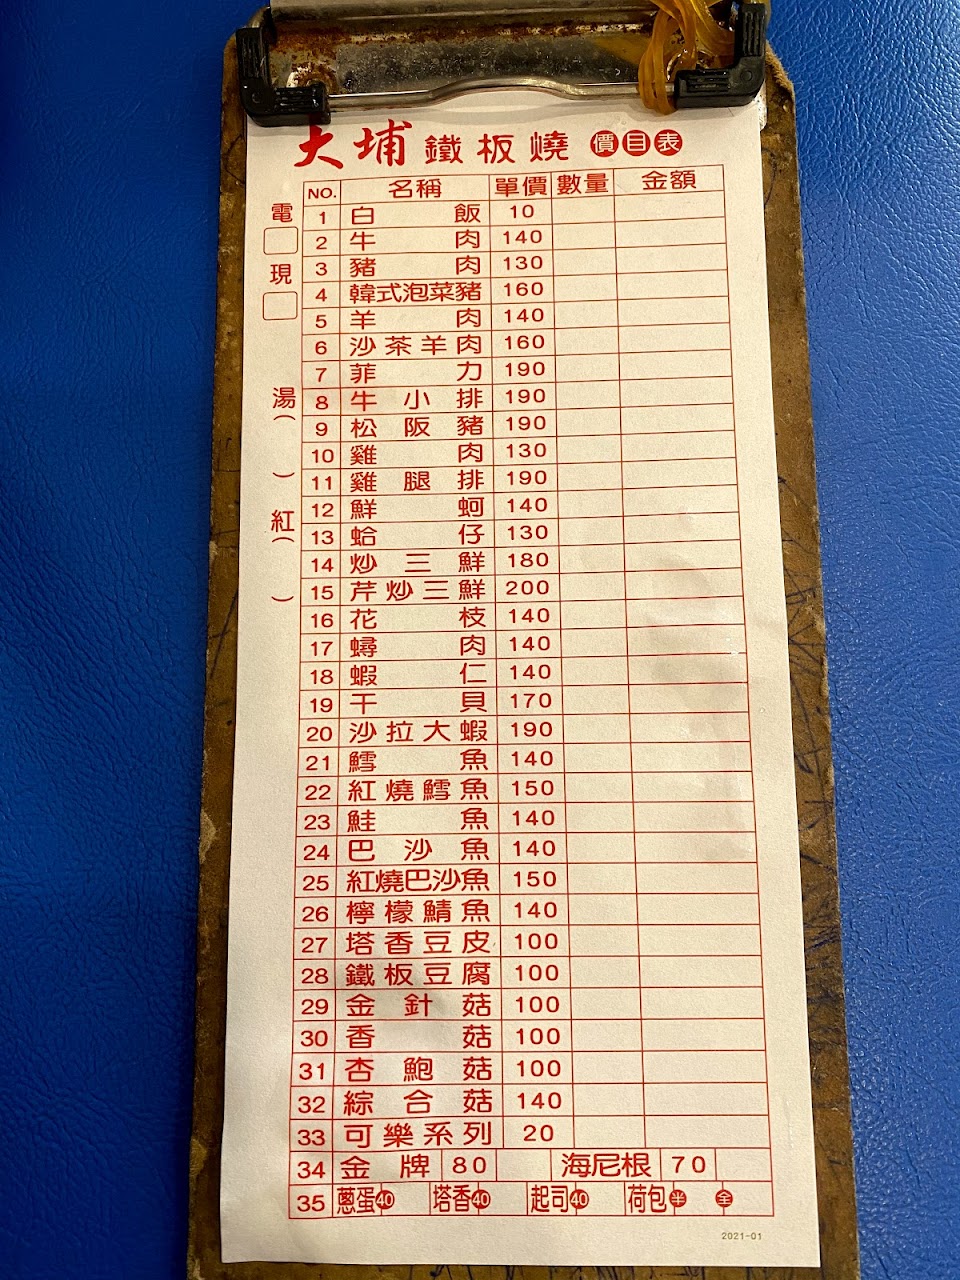 大埔鐵板燒 價目表
NO. 名稱 單價 數量 金額
電
現
湯( )
紅( )
1 白飯 10
2 牛肉 140
3 豬肉 130
4 韓式泡菜豬 160
5 羊肉 140
6 沙茶羊肉 160
7 菲力 190
8 牛小排 190
9 松阪豬 190
10 雞肉 130
11 雞腿排 190
12 鮮蚵 140
13 蛤仔 130
14 炒三鮮 180
15 芹炒三鮮 200
16 花枝 140
17 蟳肉 140
18 蝦仁 140
19 干貝 170
20 沙拉大蝦 190
21 鱈魚 140
22 紅燒鱈魚 150
23 鮭魚 140
24 巴沙魚 140
25 紅燒巴沙魚 150
26 檸檬鯖魚 140
27 塔香豆皮 100
28 鐵板豆腐 100
29 金針菇 100
30 香菇 100
31 杏鮑菇 100
32 綜合菇 140
33 可樂系列 20
34 金牌 80 海尼根 70
35 蔥蛋40 塔香40 起司40 荷包半 全
2021-01